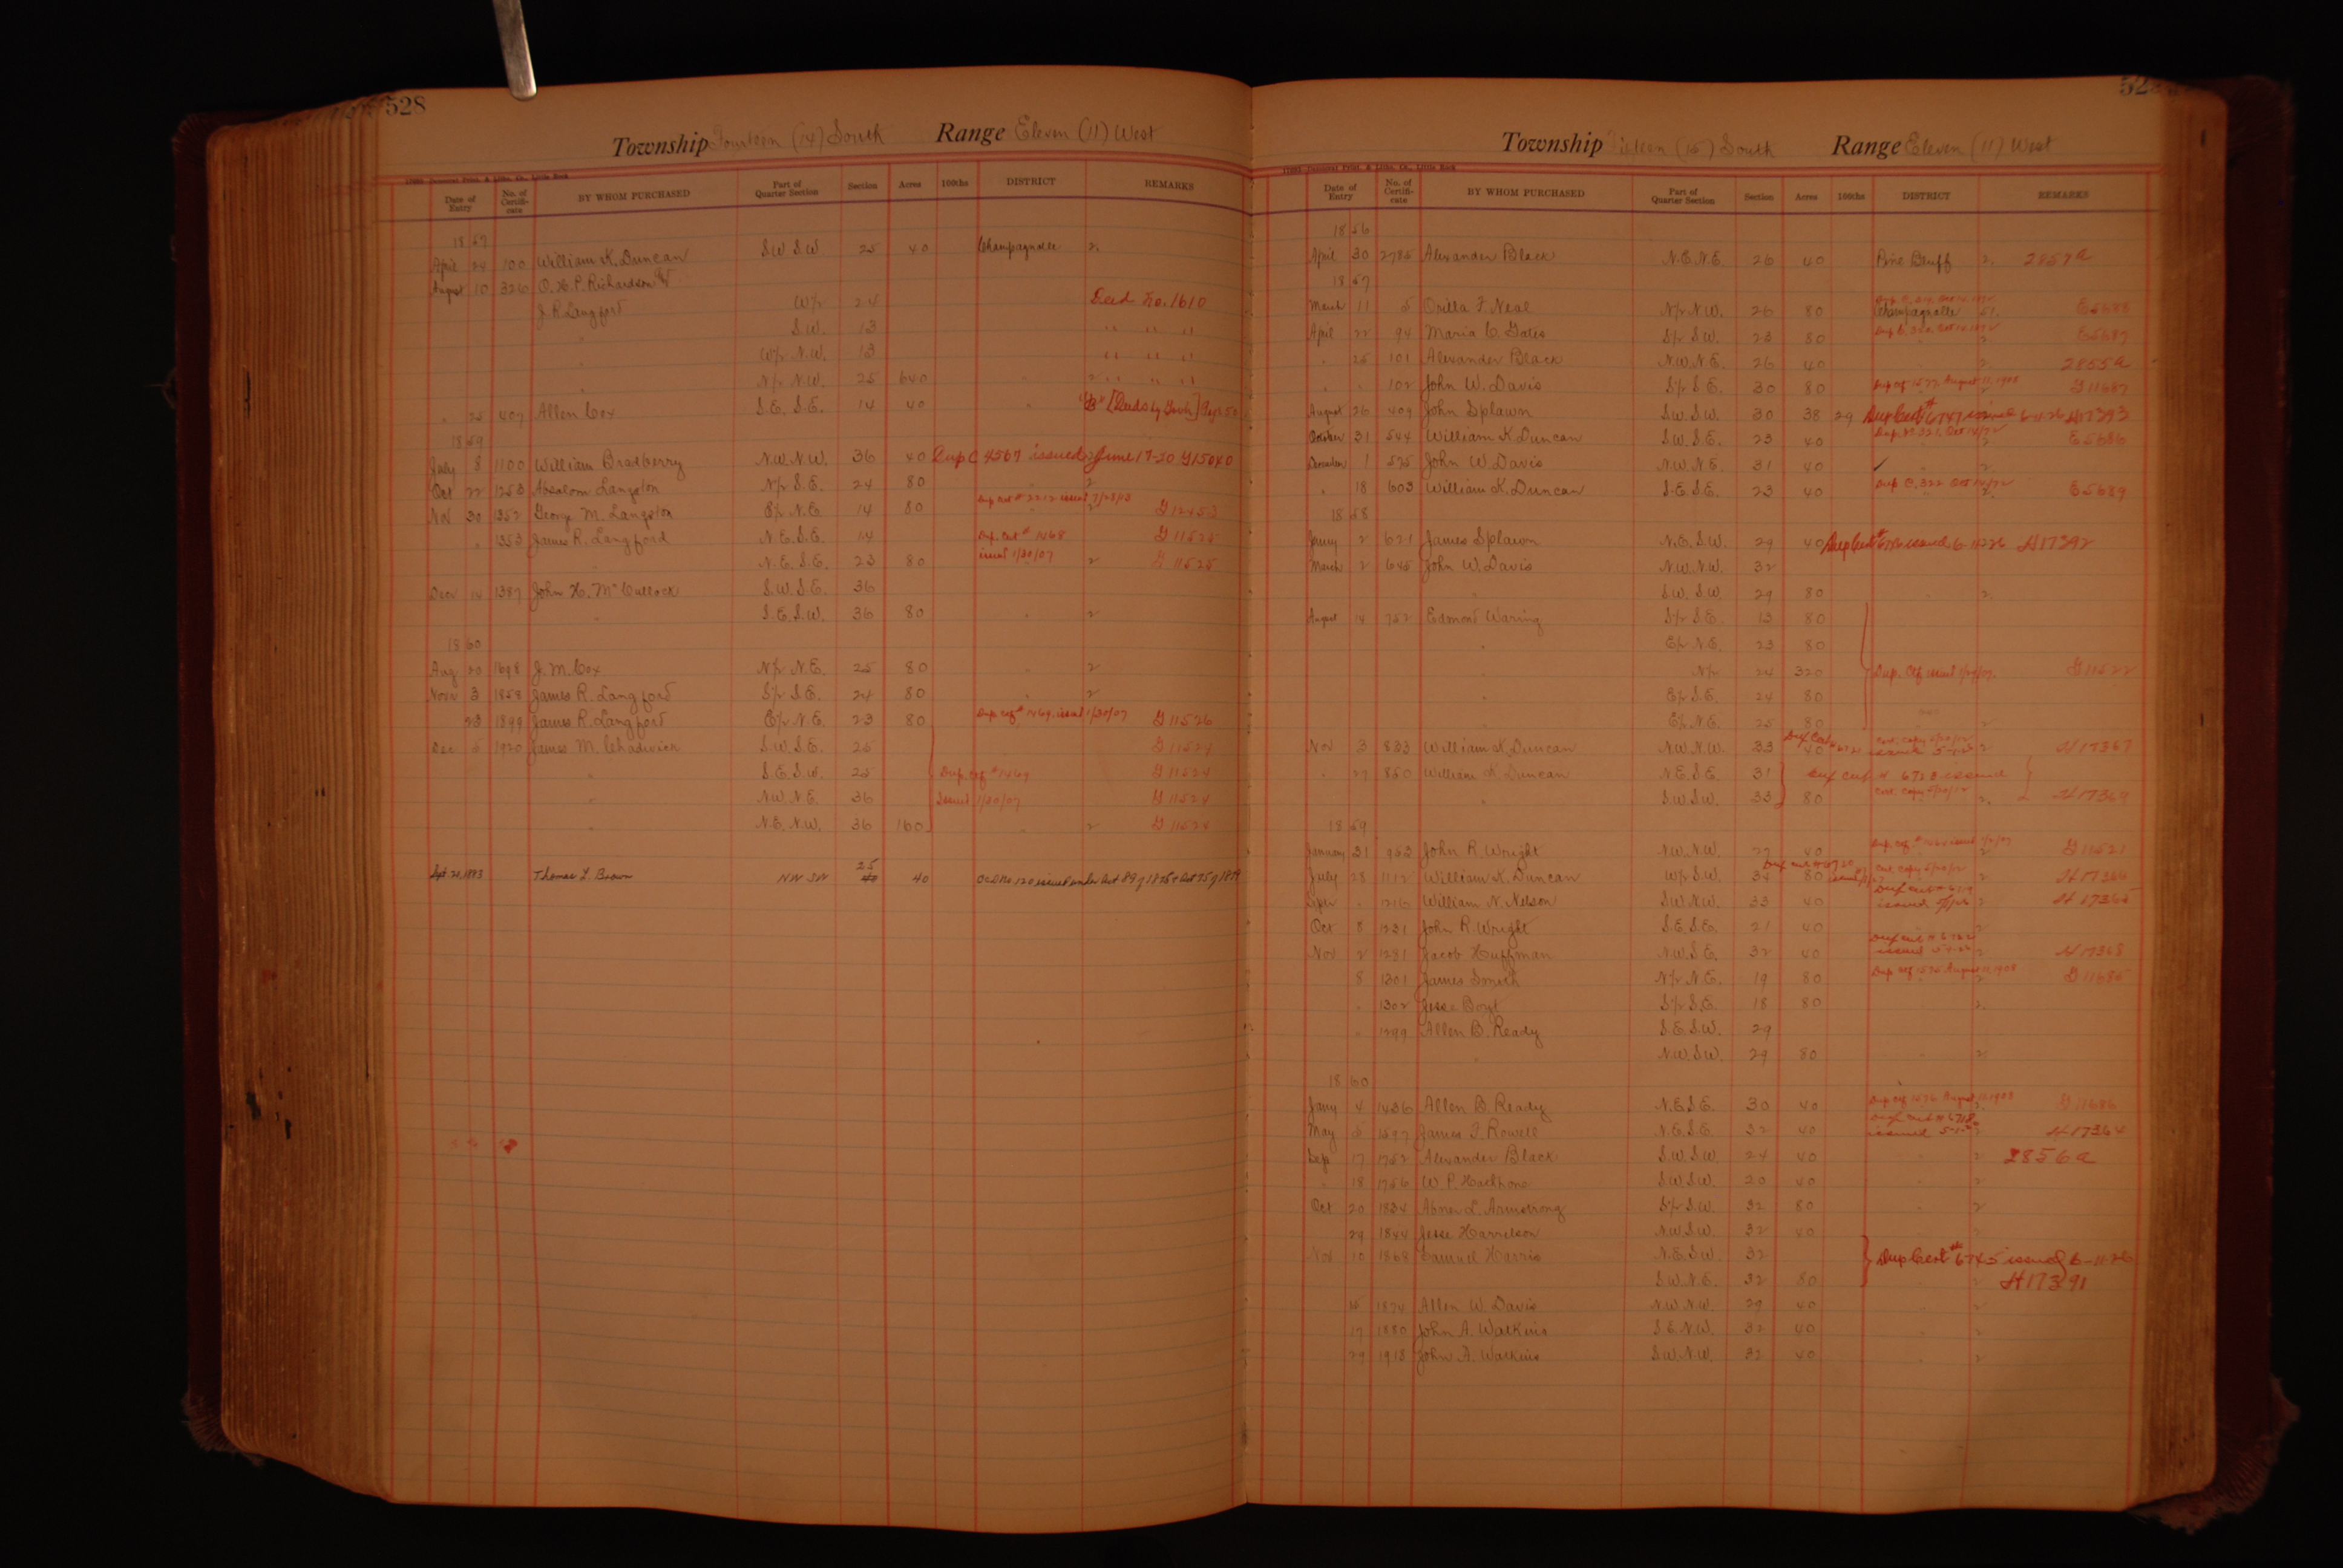 528
Township Fourteen (14) South Range Eleven (11) West
Date of Entry No. of Certifi-cate BY WHOM PURCHASED Part of Quarter Section Section Acres 100ths DISTRICT REMARKS
1857
April 24 100 William K. Duncan S.W. S.W. 25 40 Champagnolle 2
August 10 326 O.H.P. Richardson
J R Langford W/2 24 Deed No. 1610
" S.W. 13 " " "
" W/2 N.W. 13 " " "
" N/2 N.W. 25 640 " 2 " " "
" 25 407 Allen Cox S.E. S.E. 14 40 "
1859
July 8 1100 William Bradberry N.W. N.W. 36 40 Dup C 4567 issued June 17-20 G15040
Oct 22 1253 Absalom Langston N/2 S.E. 24 80 " 2
Nov 30 1352 George M. Langston E/2 N.E. 14 80 2 G12453
" 1353 James R. Langford N.E. S.E. 14 Dup. Cert # 1468 G11525
" N.E. S.E. 23 80 issued 1/30/07 2 G11525
Decr 14 1387 John H. McCullock S.W. S.E. 36
" S.E. S.W. 36 80 " 2
1860
Aug 20 1698 J. M. Cox N/2 N.E. 25 80 " 2
Novr 3 1858 James R. Langford S/2 S.E. 24 80 " 2
23 1899 James R. Langford E/2 N.E. 23 80 Dup ctf # 1469 issued 1/30/07 G11526
Dec 5 1920 James M. Chadwick S.W. S.E. 25 G11524
" S.E. S.W. 25 Dup. ctf #1469 G11524
" N.W. N.E. 36 Issued 1/30/07 G11524
" N.E. N.W. 36 160 " 2 G11524
Sept 20, 1883 Thomas L. Brown NW SW 25 40
Township (15) South Range Eleven (11) West
Date of Entry No. of Certifi-cate BY WHOM PURCHASED Part of Quarter Section Section Acres 100ths DISTRICT REMARKS
1856
April 30 2785 Alexander Black N.E. N.E. 26 40 Pine Bluff 2. 2857a
1857
March 11 5 Orilla F. Neal N/2 N.W. 26 80 Champagnolle E5688
April 22 94 Maria C. Gates S/2 S.W. 23 80 2 E5687
" 25 101 Alexander Black N.W. N.E. 26 40 " 2 2855a
" " 102 John W. Davis S/2 S.E. 30 80 Dup ctf 1577 August 11, 1908 G11687
August 26 409 John Splawn S.W. S.W. 30 38 29 Dup Cert # 6747 issued 6-4-26 H17393
October 31 544 William K. Duncan S.W. S.E. 23 40 2 E5686
December 1 575 John W. Davis N.W. N.E. 31 40 2
" 18 603 William K. Duncan S.E. S.E. 23 40 Dup C. 322 Oct 14/72 E5689
1858
Jany 2 621 James Splawn N.E. S.W. 29 40 H17392
March 2 645 John W. Davis N.W. N.W. 32
" S.W. S.W. 29 80 " 2
August 14 752 Edmond Waring S/2 S.E. 13 80
" E/2 N.E. 23 80
" N/2 24 320 Dup. Ctf issued G11522
" E/2 S.E. 24 80
" E/2 N.E. 25 80 2
Nov 3 833 William K. Duncan N.W. N.W. 33 40 2 H17367
" 27 850 William K. Duncan N.E. S.E. 31 Dup cert # 6723 issued
" S.W. S.W. 33 80 2. H17369
1859
January 31 952 John R. Wright N.W. N.W. 27 40 G11521
July 28 1112 William K. Duncan W/2 S.W. 34 80 2 H17366
Sepr " 1216 William N. Nelson S.W. N.W. 33 40 2 H17365
Oct 8 1231 John R. Wright S.E. S.E. 21 40 2
Nov 2 1281 Jacob Huffman N.W. S.E. 32 40 2 H17368
8 1301 James Smith N/2 N.E. 19 80 Dup ctf 1575 August 11, 1908 G11685
" 1302 Jesse Boyt S/2 S.E. 18 80 2
" 1299 Allen B. Ready S.E. S.W. 29
" N.W. S.W. 29 80 " 2
1860
Jany 4 1436 Allen B. Ready N.E. S.E. 30 40 Dup ctf 1576 August 11, 1908 G11686
May 5 1597 James F. Rowell N.E. S.E. 32 40 2 H17364
Sep 17 1752 Alexander Black S.W. S.W. 24 40 " 2 2856a
" 18 1756 W. P. S.W. S.W. 20 40 " 2
Oct 20 1834 Abner L. Armstrong S/2 S.W. 32 80 " 2
29 1844 Jesse Harrelson N.W. S.W. 32 40
Nov 10 1868 Samuel Harris N.E. S.W. 32 Dup Cert # 6745 issued 6-11-26
S.W. N.E. 32 80 2 H17391
15 1874 Allen W. Davis N.W. N.W. 29 40 " 2
17 1880 John A. Watkins S.E. N.W. 32 40 " 2
29 1913 John A. Watkins S.W. N.W. 32 40 " 2